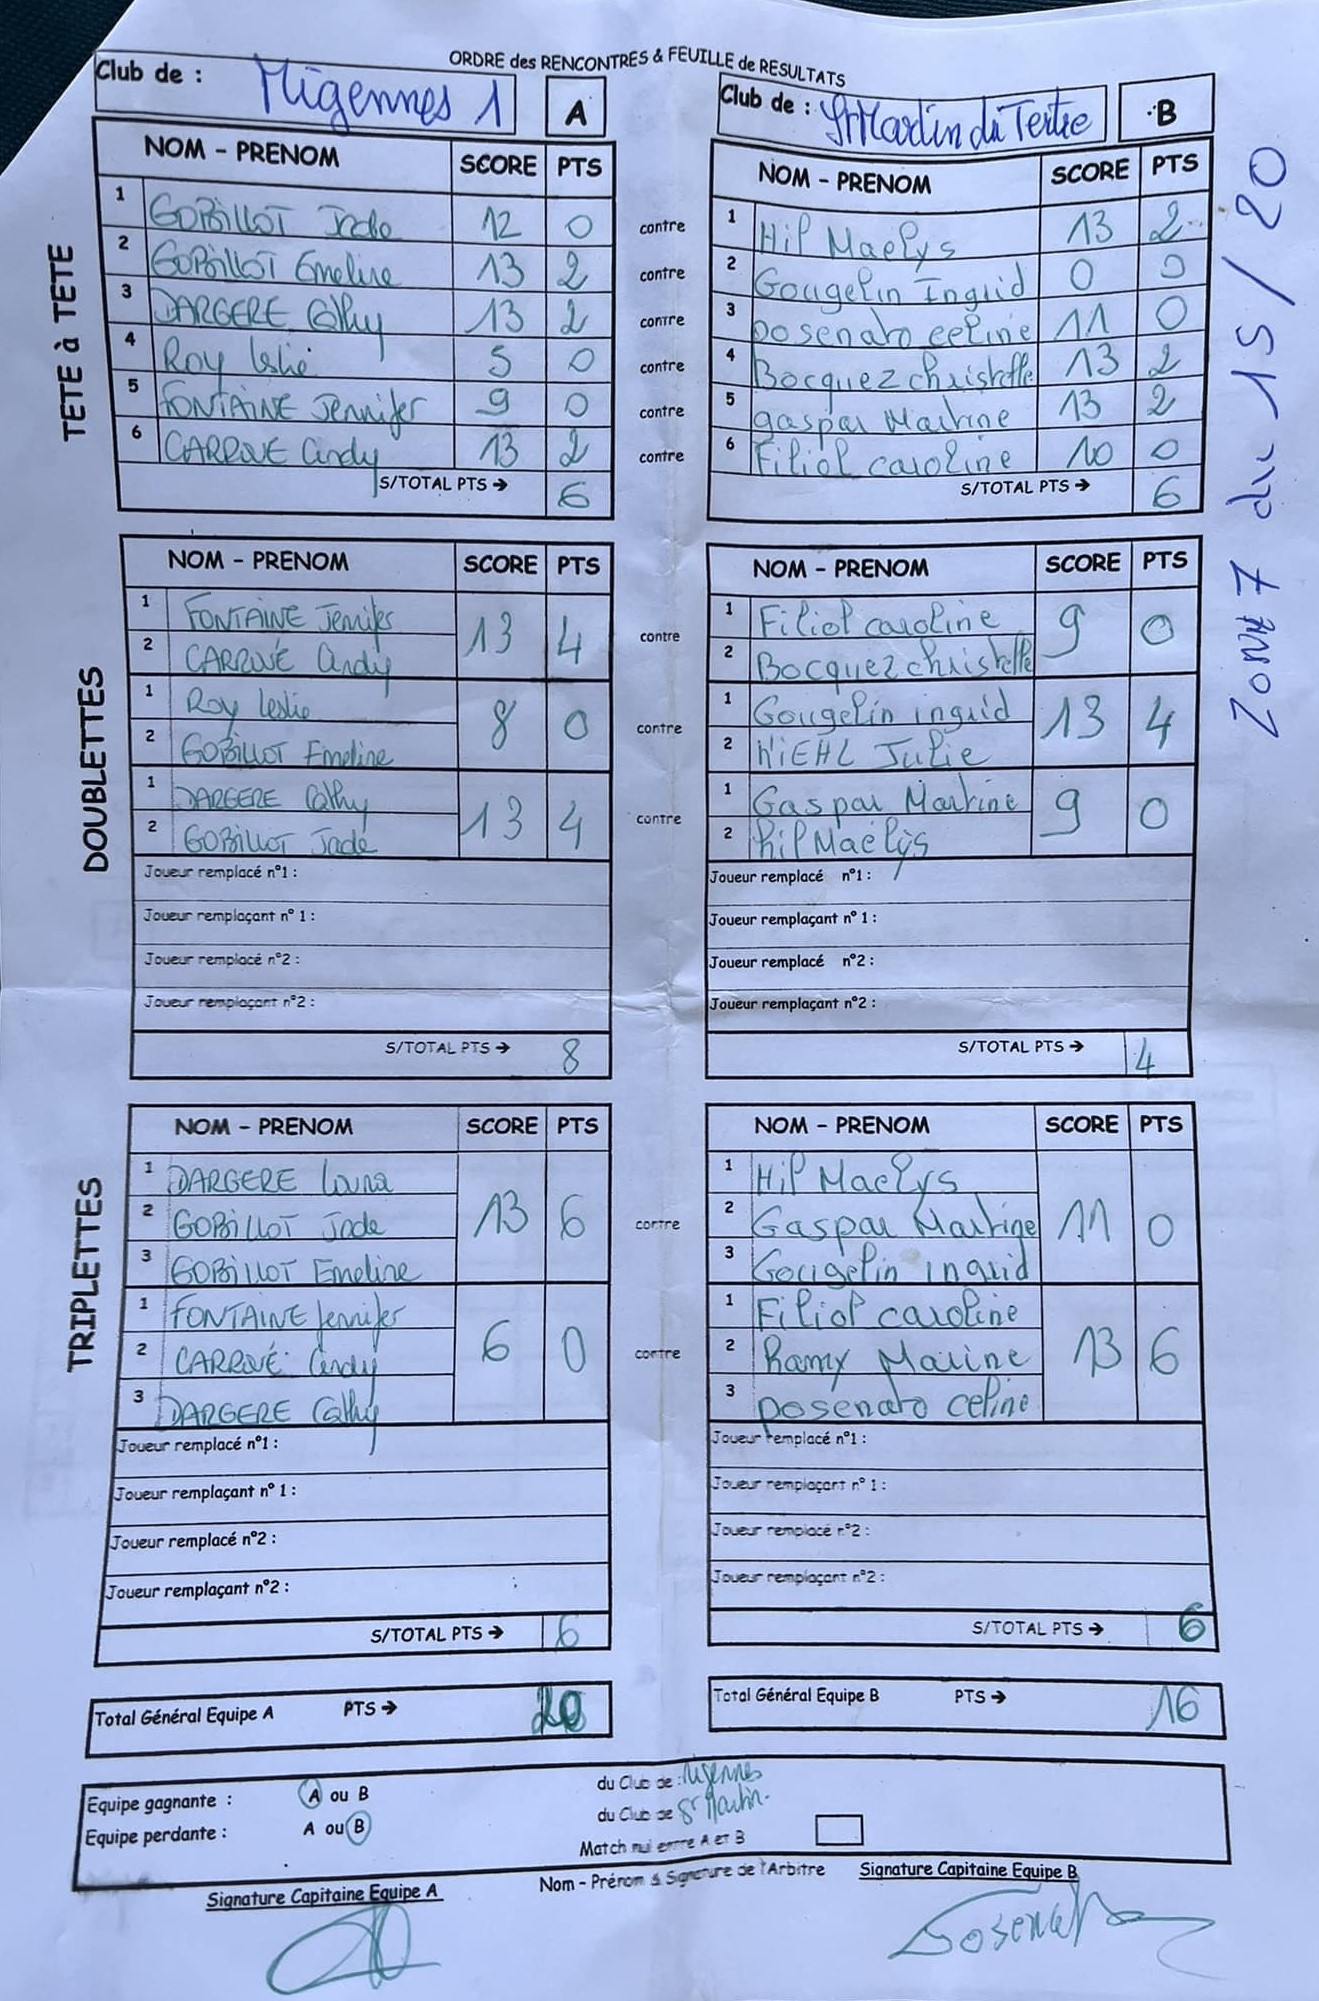 ORDRE des RENCONTRES & FEUILLE de RESULTATS
Club de : Migennes 1 A
Club de : St Martin du Tertre B
ZONE 7 du 15/20
TETE à TETE
NOM - PRENOM SCORE PTS NOM - PRENOM SCORE PTS
1 GOBILLOT Jade 12 0 contre 1 Hil Maëlys 13 2
2 GOBILLOT Emeline 13 2 contre 2 Gougelin Ingrid 0 0
3 DARGERE Cathy 13 2 contre 3 Dosenato celine 11 0
4 Roy leslie 5 0 contre 4 Bocquez christelle 13 2
5 FONTAINE Jennifer 9 0 contre 5 gaspar Martine 13 2
6 CARROUÉ Cindy 13 2 contre 6 Filiol caroline 10 0
S/TOTAL PTS → 6 S/TOTAL PTS → 6
DOUBLETTES
NOM - PRENOM SCORE PTS NOM - PRENOM SCORE PTS
1 FONTAINE Jennifer 13 4 contre 1 Filiol caroline 9 0
2 CARROUÉ Cindy 2 Bocquez christelle
1 Roy leslie 8 0 contre 1 Gougelin ingrid 13 4
2 GOBILLOT Emeline 2 Julie
1 DARGERE Cathy 13 4 contre 1 Gaspar Martine 9 0
2 GOBILLOT Jade 2 hil Maëlys
Joueur remplacé n°1 : Joueur remplacé n°1 :
Joueur remplaçant n° 1 : Joueur remplaçant n° 1 :
Joueur remplacé n°2 : Joueur remplacé n°2 :
Joueur remplaçant n°2 : Joueur remplaçant n°2 :
S/TOTAL PTS → 8 S/TOTAL PTS → 4
TRIPLETTES
NOM - PRENOM SCORE PTS NOM - PRENOM SCORE PTS
1 DARGERE Louna 13 6 contre 1 Hil Maelys 11 0
2 GOBILLOT Jade 2 Gaspar Martine
3 GOBILLOT Emeline 3 Gougelin ingrid
1 FONTAINE Jennifer 6 0 contre 1 Filiol caroline 13 6
2 CARROUÉ Cindy 2 Ramy Marine
3 DARGERE Cathy 3 Dosenato celine
Joueur remplacé n°1 : Joueur remplacé n°1 :
Joueur remplaçant n° 1 : Joueur remplaçant n° 1 :
Joueur remplacé n°2 : Joueur remplacé n°2 :
Joueur remplaçant n°2 : Joueur remplaçant n°2 :
S/TOTAL PTS → 6 S/TOTAL PTS → 6
Total Général Equipe A PTS → 20 Total Général Equipe B PTS → 16
Equipe gagnante : A ou B du Club de : Migennes
Equipe perdante : A ou B du Club de St Martin
Match nul entre A et B
Signature Capitaine Equipe A Nom - Prénom & Signature de l'Arbitre Signature Capitaine Equipe B